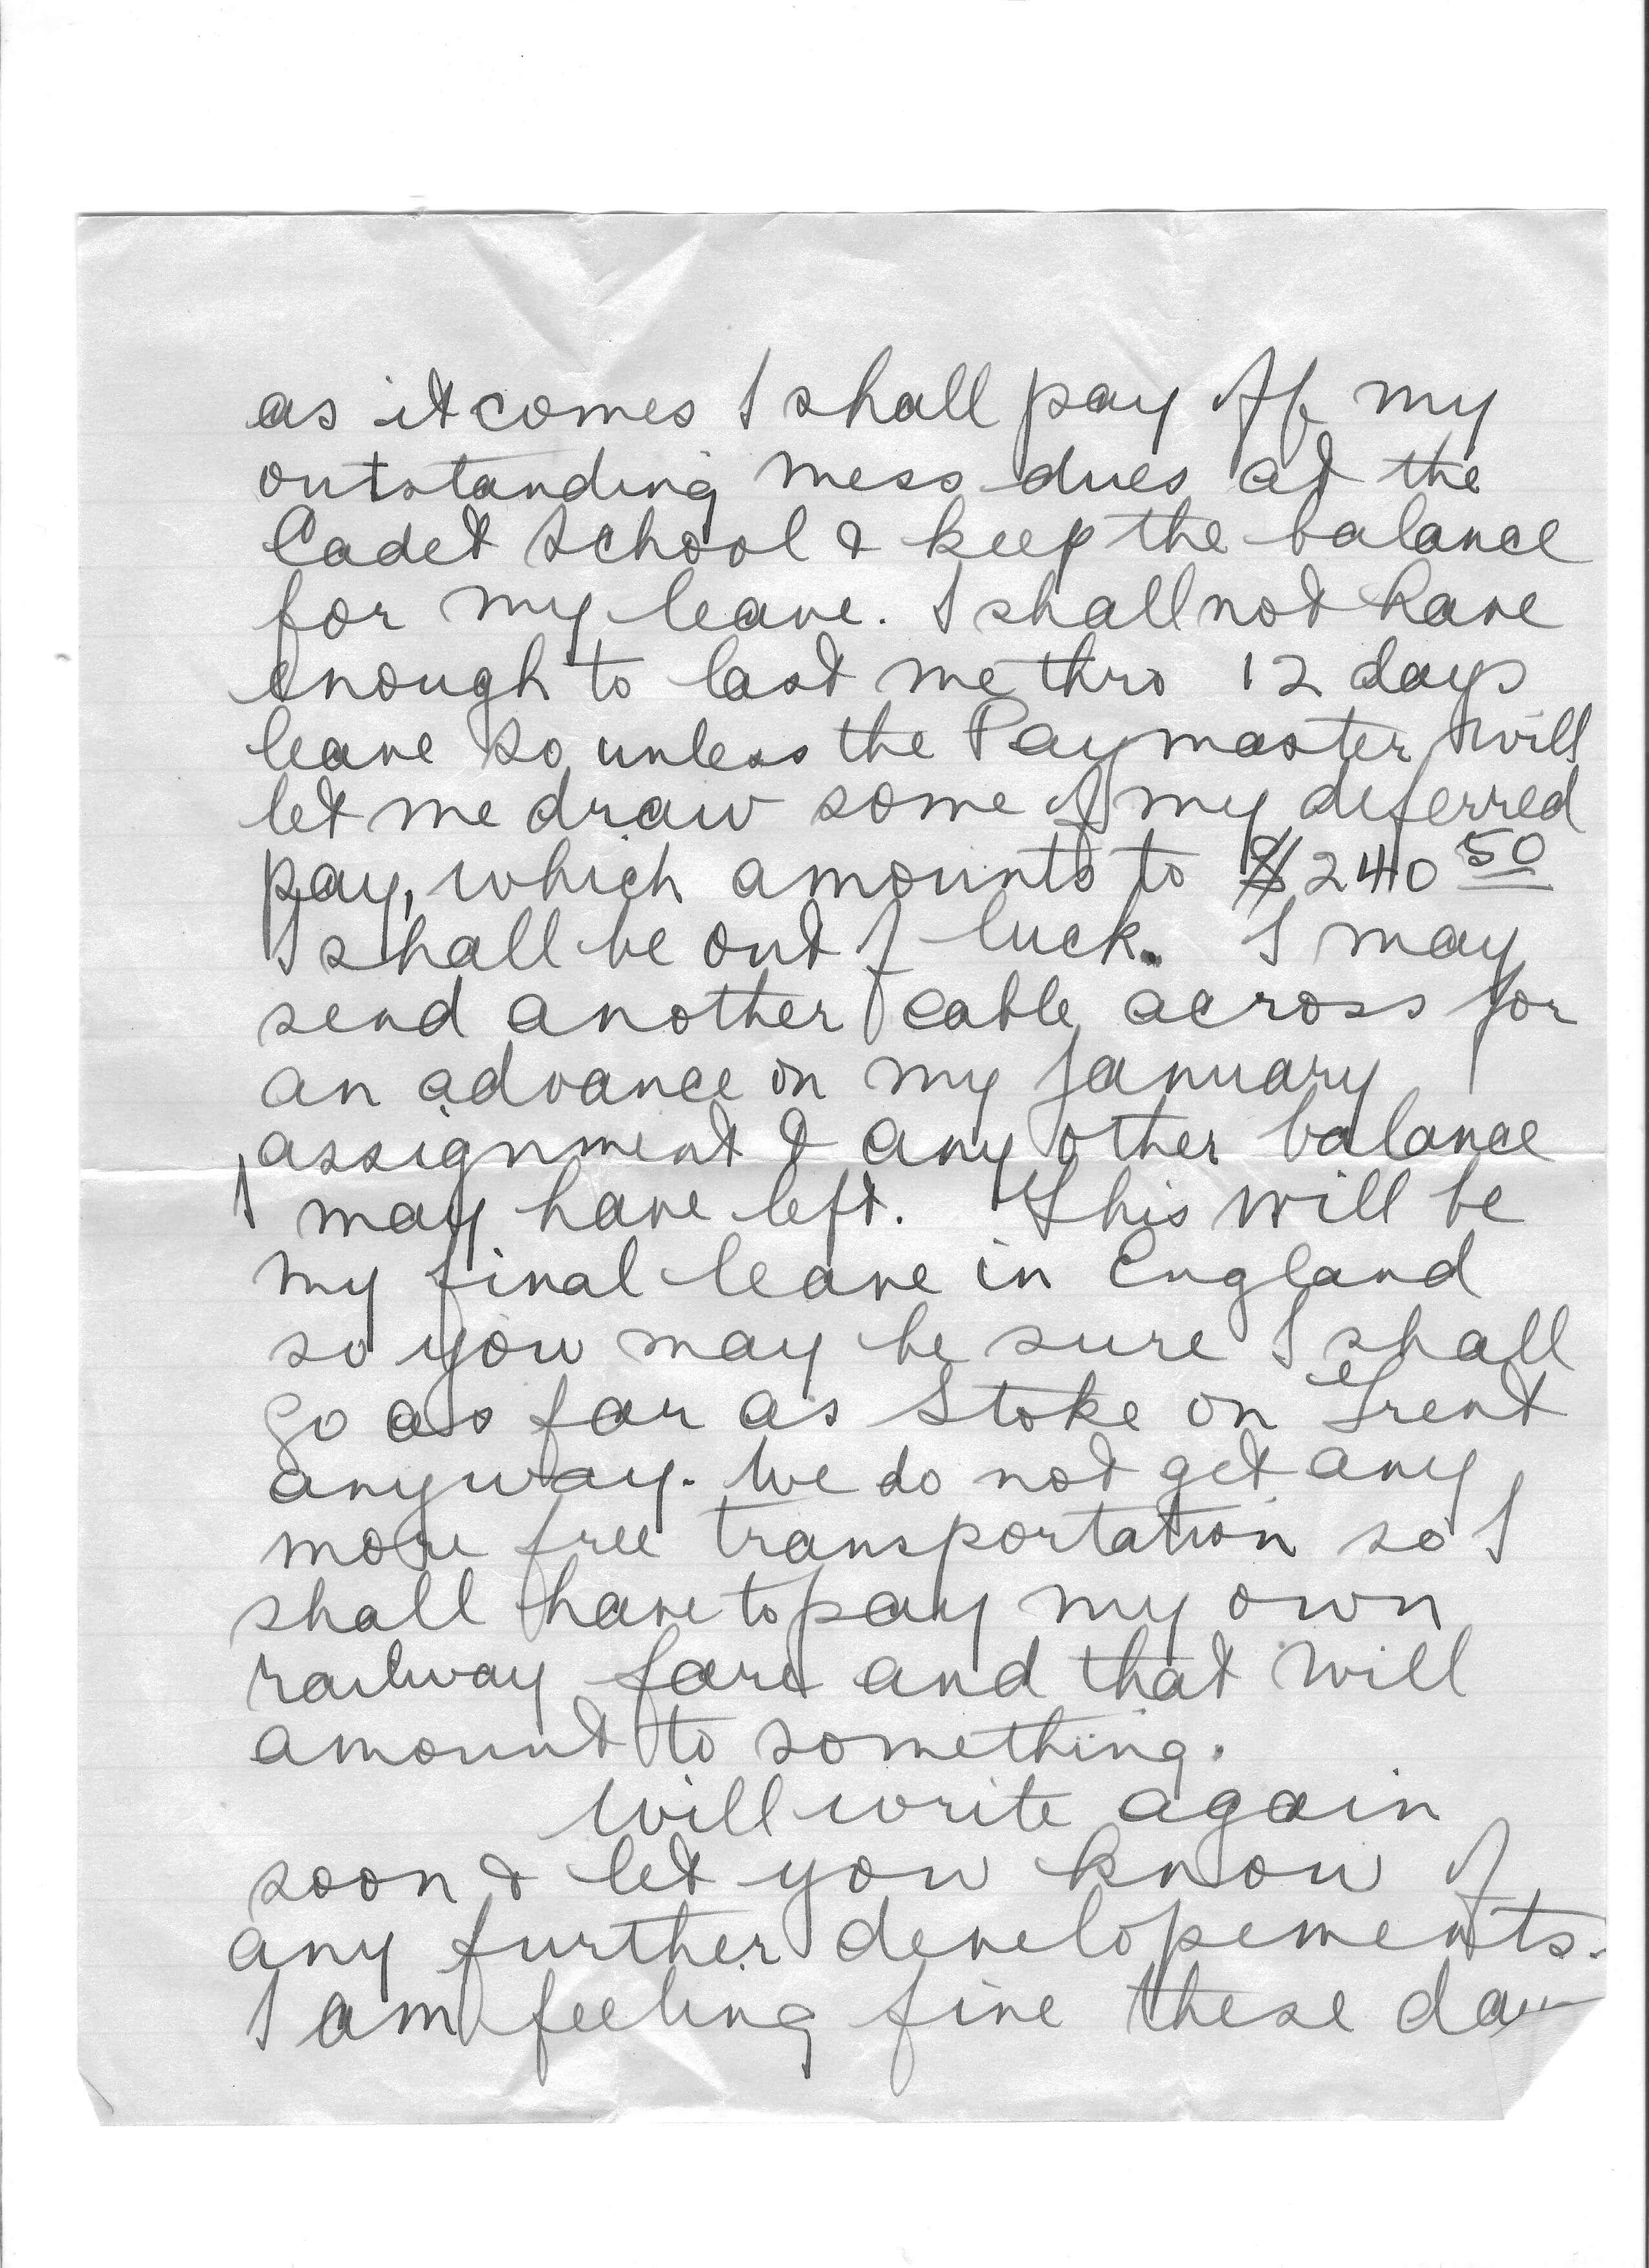 as it comes I shall pay off my
outstanding mess dues at the
Cadet School & keep the balance
for my leave. I shall not have
enough to last me thro 12 days
leave so unless the Paymaster will
let me draw some of my deferred
pay, which amounts to $240 50
I shall be out of luck. I may
send another cable across for
an advance on my January
assignment & any other balance
I may have left. This will be
my final leave in England
so you may be sure I shall
go as far as Stoke on Trent
anyway. We do not get any
more free transportation so I
shall have to pay my own
railway fare and that will
amount to something.
Will write again
soon & let you know of
any further developements.
I am feeling fine these